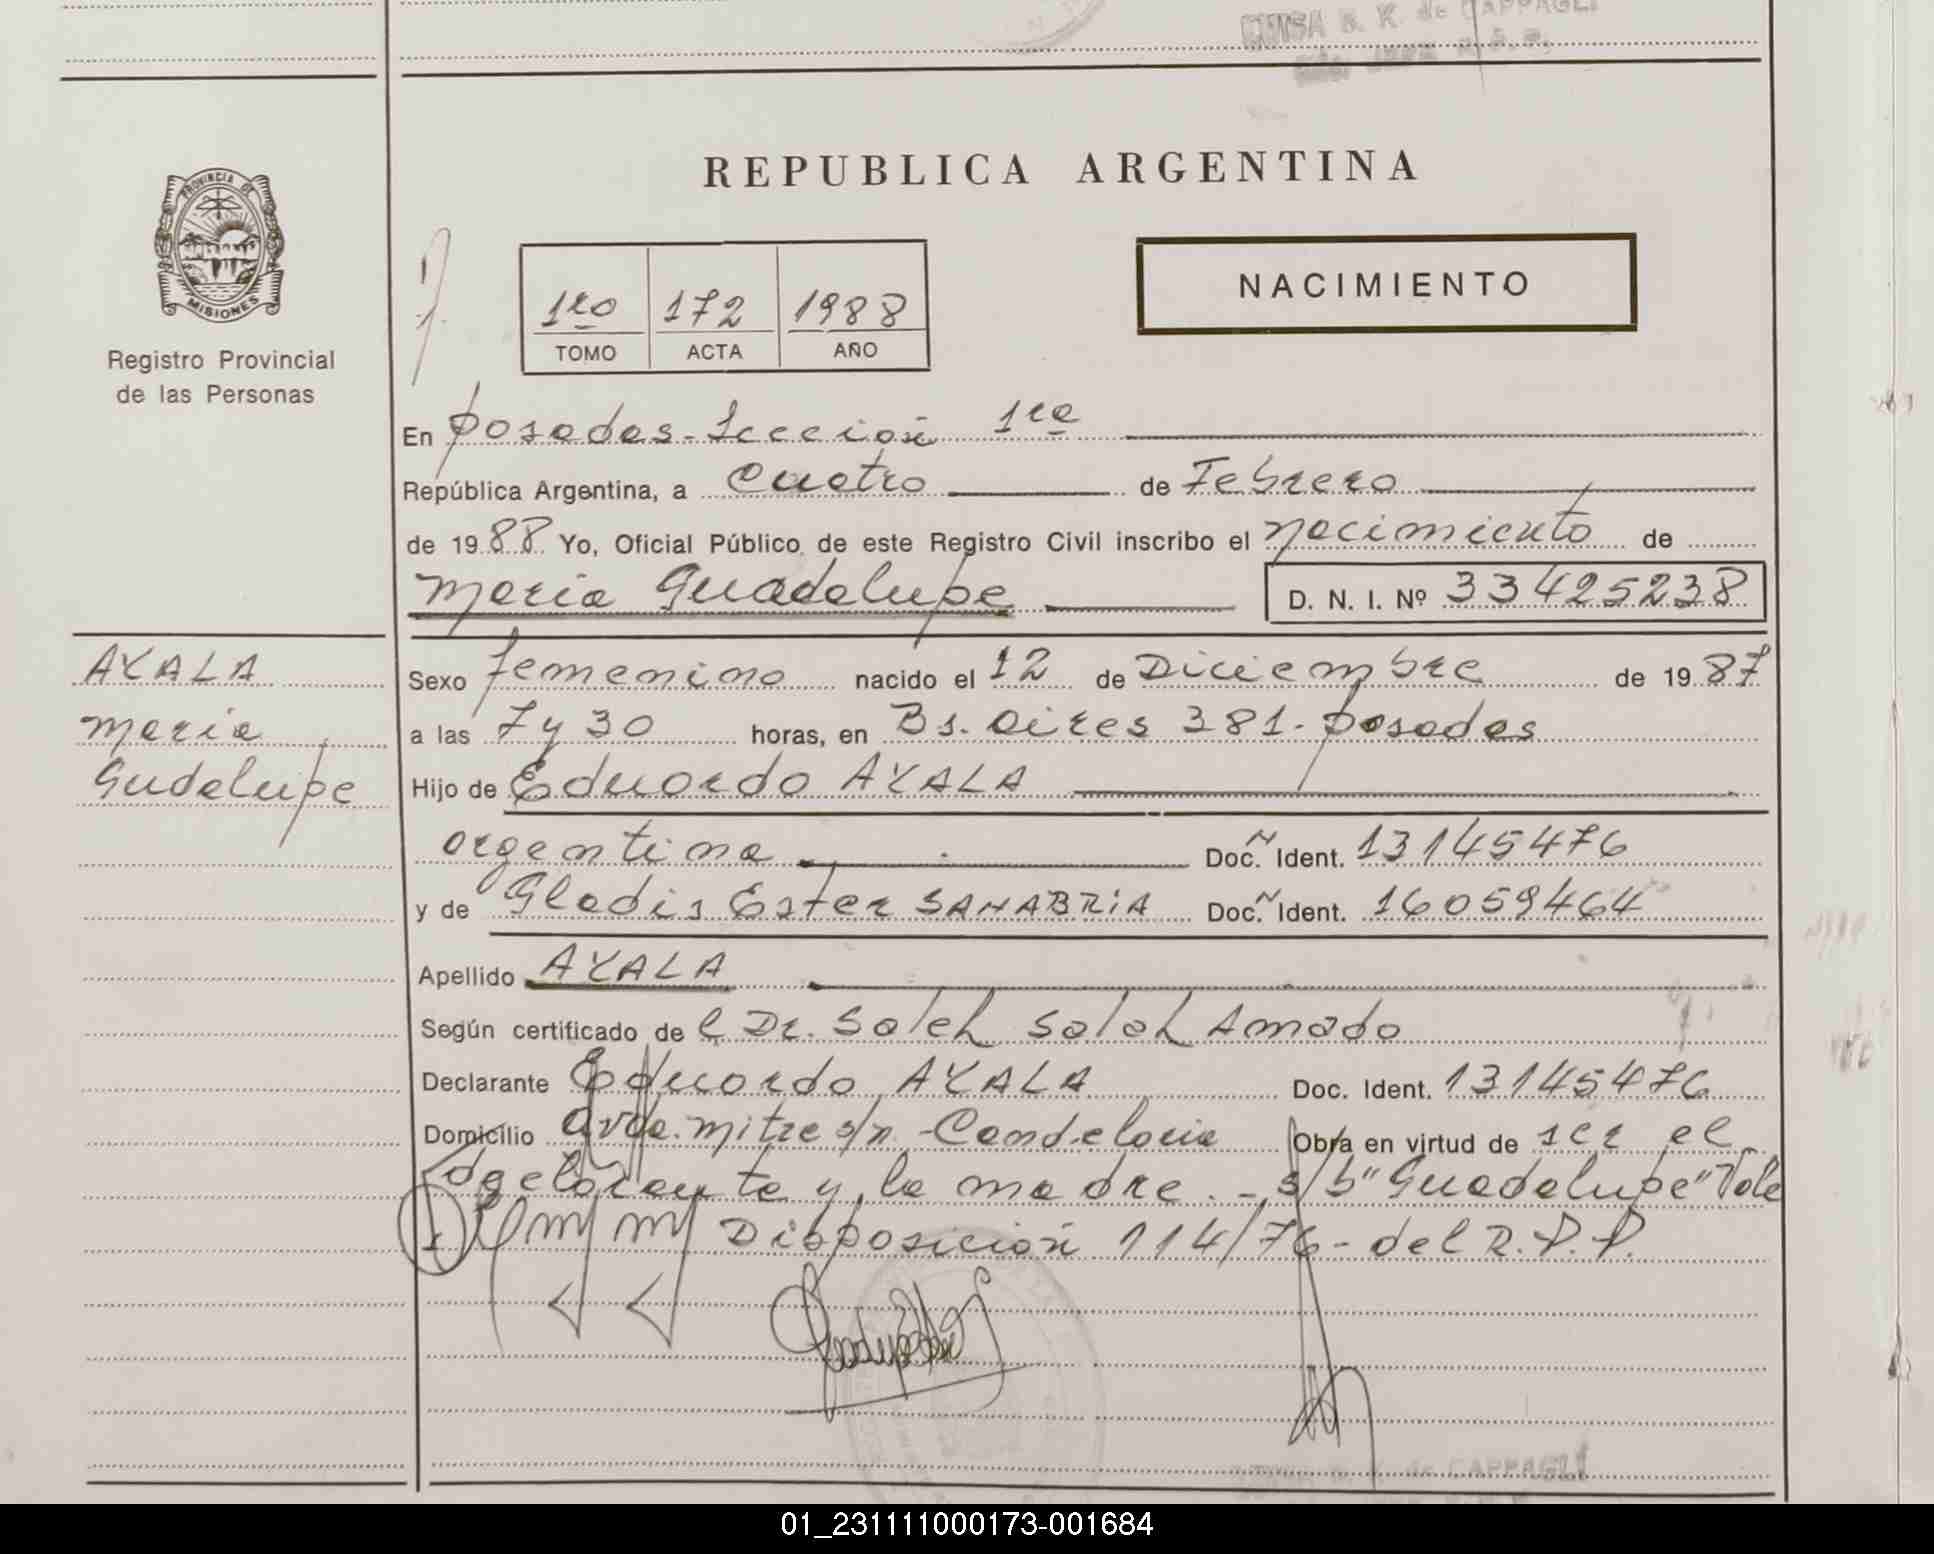 LUISA B. K. de CAPPAGLI
REPUBLICA ARGENTINA
PROVINCIA DE
MISIONES
Registro Provincial
de las Personas
1ro 172 1988
TOMO ACTA AÑO
NACIMIENTO
En Posadas - Sección 1ra
República Argentina, a cuatro de Febrero
de 1988 Yo, Oficial Público de este Registro Civil inscribo el nacimiento de
María Guadalupe D. N. I. Nº 33425238
AYALA
María
Gudalupe
Sexo femenino nacido el 12 de Diciembre de 1987
a las 7 y 30 horas, en Bs. Aires 381 - Posadas
Hijo de Eduardo AYALA
argentina Doc. Ident. 13145476
y de Gladis Ester SANABRIA Doc. Ident. 16059464
Apellido AYALA
Según certificado de l Dr. Saleh Salah Amado
Declarante Eduardo AYALA Doc. Ident. 13145476
Domicilio Avda. Mitre s/n - Candelaria Obra en virtud de ser el
declarante y la madre. - s/b "Guadalupe" Vale
Disposición 114/76 - del R.P.P.
de CAPPAGLI
01_231111000173-001684